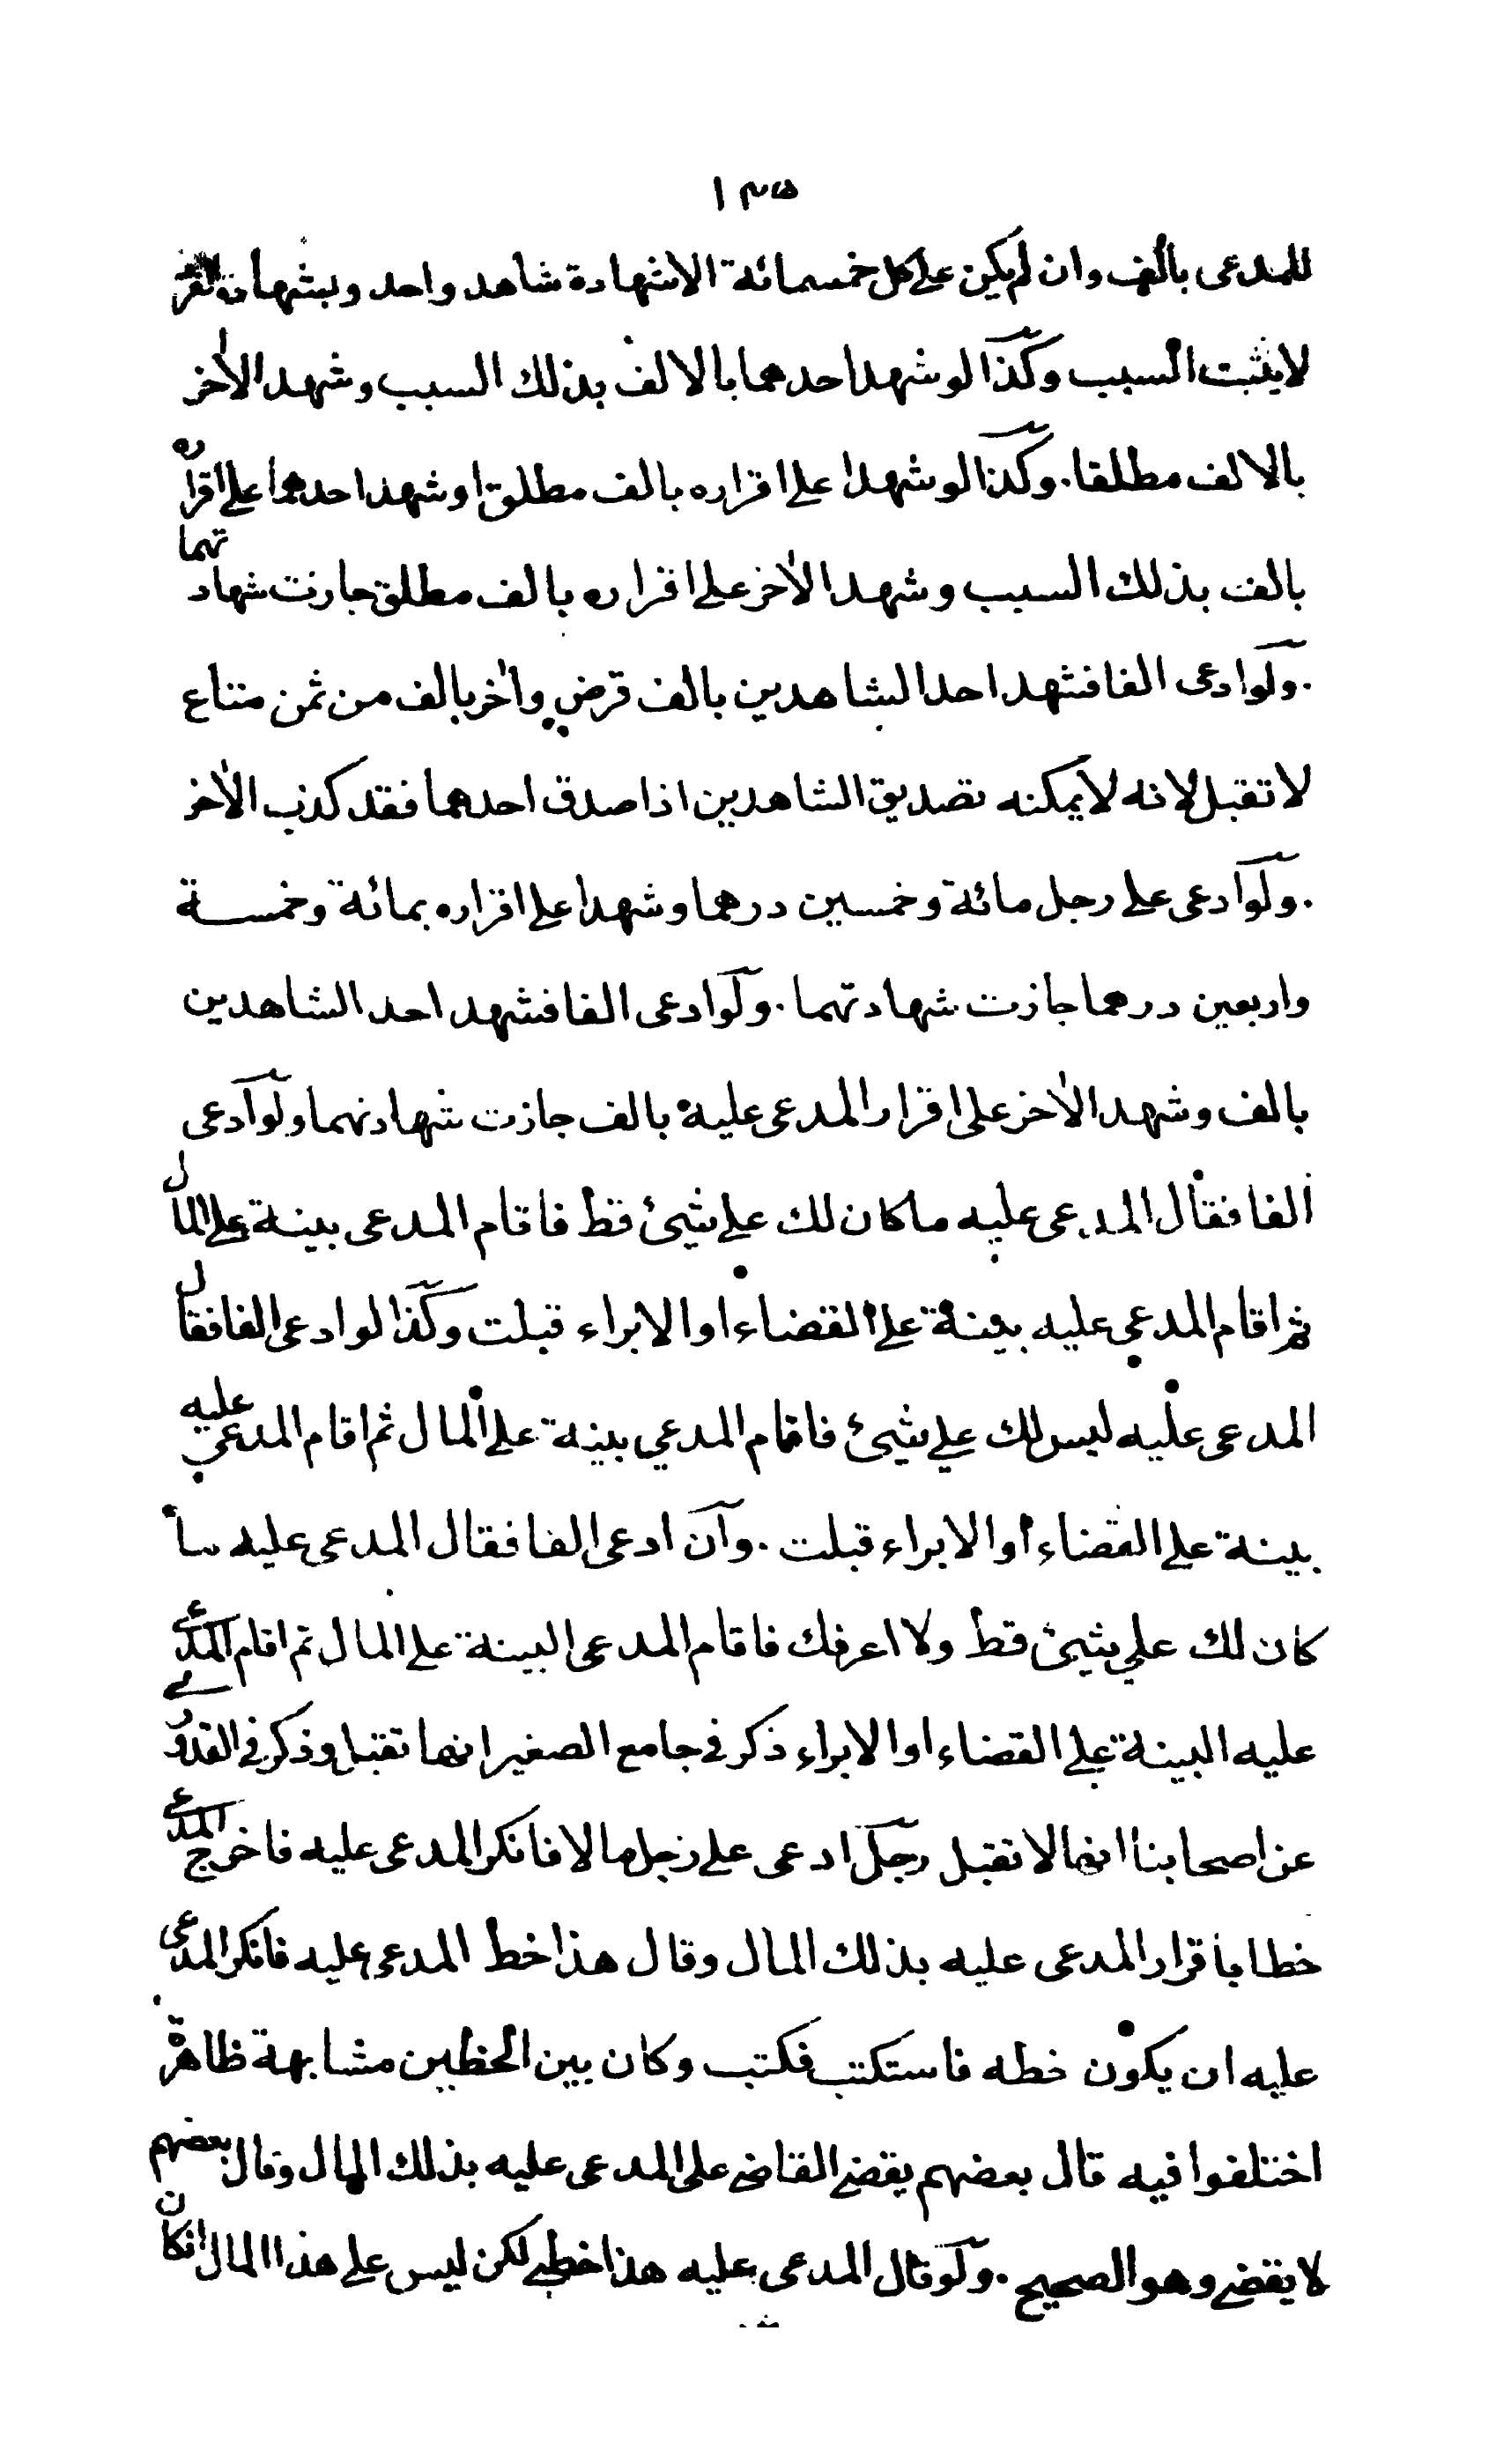 ١٣٥
للمدعى بالف وان لم يكن على كل خمسمائة الاشهادة شاهد واحد وبشهادة
لايثبت السبب وكذا لو شهد احدهما بالالف بذلك السبب وشهد الاٰخر
بالالف مطلقا. وكذا لو شهدا على اقراره بالف مطلق او شهد احدهما على اقراره
بالف بذلك السبب وشهد الاٰخر على اقراره بالف مطلق جازت شهادتهما
. ولو ادعى الفا فشهد احد الشاهدين بالف قرض واٰخر بالف من ثمن متاع
لا تقبل لانه لا يمكنه تصديق الشاهدين اذا صدق احدهما فقد كذب الاٰخر
. ولو ادعى على رجل مائة وخمسين درهما وشهدا على اقراره بمائة وخمسة
واربعين درهما جازت شهادتهما. ولو ادعى الفا فشهد احد الشاهدين
بالف وشهد الاٰخر على اقرار المدعى عليه بالف جازت شهادتهما ولو ادعى
الفا فقال المدعى عليه ماكان لك علي شيئ قط فاقام المدعى بينة على المال
ثم اقام المدعي عليه بينة على القضاء او الابراء قبلت وكذا لو ادعى الفا فقال
المدعى عليه ليس لك علي شيئ فاقام المدعي بينة على المال ثم اقام المدعي عليه
بينة على القضاء أو الابراء قبلت. وان ادعى الفا فقال المدعى عليه ما
كان لك علي شيئ قط ولا اعرفك فاقام المدعى البينة على المال ثم اقام المدعى
عليه البينة على القضاء او الابراء ذكر في جامع الصغير انها تقبل وذكر في القدوري
عن اصحابنا انها لا تقبل رجل ادعى على رجل مالا فانكر المدعى عليه فاخرج المدعى
خطا باقرار المدعى عليه بذلك المال وقال هذا خط المدعى عليه فانكر المدعى
عليه ان يكون خطه فاستكتب فكتب وكان بين الخطين مشابهة ظاهرة
اختلفوا فيه قال بعضهم يقضى القاضي على المدعى عليه بذلك المال وقال بعضهم
لا يقضى وهو الصحيح. ولو قال المدعى عليه هذا خطي لكن ليس علي هذا المال انكان